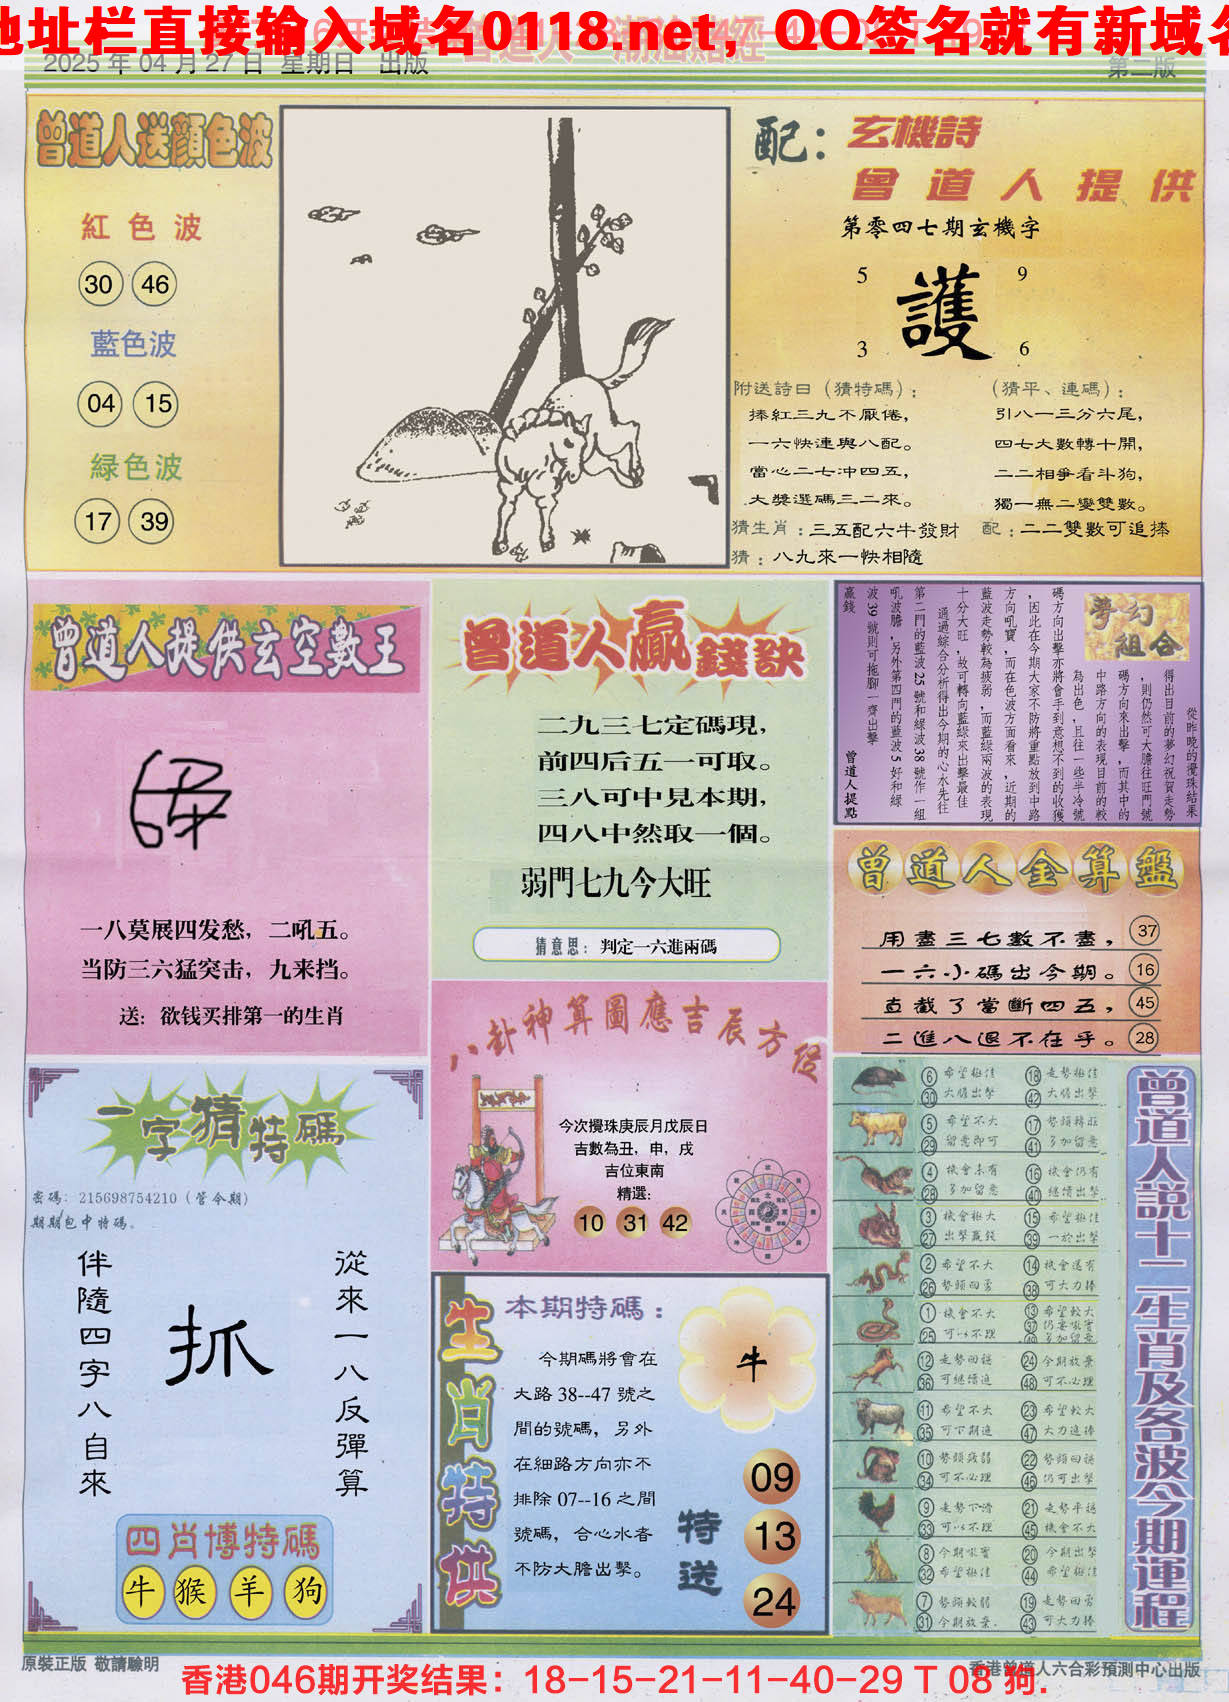 地址栏直接输入域名0118.net，QQ签名就有新域名
2025 年 04 月 27 日 星期日 出版
第二版
曾道人送顏色波
紅色波
30 46
藍色波
04 15
緑色波
17 39
配：
玄機詩
曾道人提供
第零四七期玄機字
5 9
護
3 6
附送詩曰（猜特碼）：
捧紅三九不厭倦，
一六快連與八配。
當心二七冲四五，
大獎選碼三二來。
（猜平、連碼）：
引八一三分六尾，
四七大數轉十開，
二二相爭看斗狗，
獨一無二變雙數。
猜生肖：三五配六牛發財
配：二二雙數可追捧
猜：八九來一快相隨
曾道人提供玄空數王
一八莫展四发愁，二吼五。
当防三六猛突击，九来挡。
送：欲钱买排第一的生肖
曾道人贏錢訣
二九三七定碼現，
前四后五一可取。
三八可中見本期，
四八中然取一個。
弱門七九今大旺
猜意思：判定一六進兩碼
夢幻組合
從昨晚的攪珠結果
得出目前的夢幻祝賀走勢
，則仍然可大膽往旺門號
碼方向來出擊，而其中的
中路方向的表現目前的較
為出色，且往一些半冷號
碼方向出擊亦將會手到意想不到的收獲
，因此在今期大家不防將重點放到中路
方向吼寶，而在色波方面看來，近期的
藍波走勢較為疲弱，而藍綠兩波的表現
十分大旺，故可轉向藍綠來出擊最佳
通過綜合分析得出今期的心水先往
第二門的藍波25號和綠波38號作一組
吼波膽，另外第四門的藍波5好和綠
波39號則可拖腳一齊出擊
贏錢
曾道人提點
曾道人金算盤
用盡三七數不盡， 37
一六小碼出今期。 16
直截了當斷四五， 45
二進八退不在乎。 28
八卦神算圖應吉辰方位
今次攪珠庚辰月戊辰日
吉數為丑，申，戌
吉位東南
精選：
10 31 42
一字猜特碼
密碼：215698754210（管今期）
期期包中特碼。
從來一八反彈算
抓
伴隨四字八自來
四肖博特碼
牛 猴 羊 狗
生肖特供
本期特碼：
今期碼將會在
大路 38--47 號之
間的號碼，另外
在細路方向亦不
排除 07--16 之間
號碼，合心水者
不防大膽出擊。
牛
特送
09
13
24
曾道人説十二生肖及各波今期運程
6 希望極佳 18 走勢極佳
30 大膽出擊 42 大膽出擊
5 希望不大 17 勢頭轉旺
29 留意即可 41 多加留意
4 機會未有 16 機會仍有
28 多加留意 40 繼續出擊
3 機會極大 15 希望極佳
27 出擊贏錢 39 一於出擊
2 希望不大 14 機會還有
26 勢頭回勇 38 可大力捧
1 機會不大 13 希望較大
25 可以不理 37
12 走勢回穩 24 今期放棄
36 可繼續追 48 可不必理
11 希望不大 23 希望較大
35 可下期追 47 大力追捧
10 勢頭疲弱 22 勢頭回穩
34 可不必理 46 仍可出擊
9 走勢下滑 21 走勢平穩
33 可以不理 45 機會不大
8 今期吼寶 20 今期出擊
32 希望極佳 44 希望極佳
7 勢頭較弱 19 走勢回勇
31 今期放棄. 43 可大力捧
原裝正版 敬請驗明
香港曾道人六合彩預測中心出版
香港046期开奖结果：18-15-21-11-40-29 T 08 狗.